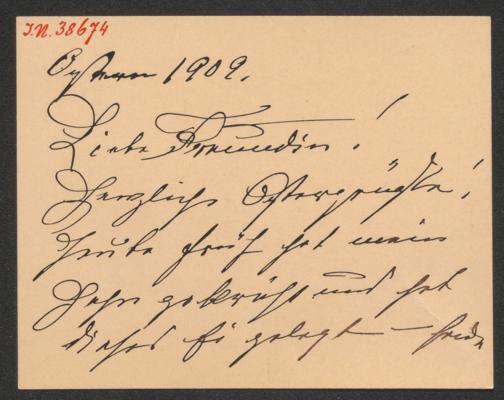 I.N. 38674
Ostern 1909.
Liebe Freundin!
Herzliche Ostergrüße!
Heute früh hat mein
Hahn gekräht und hat
dieses Ei gelegt –